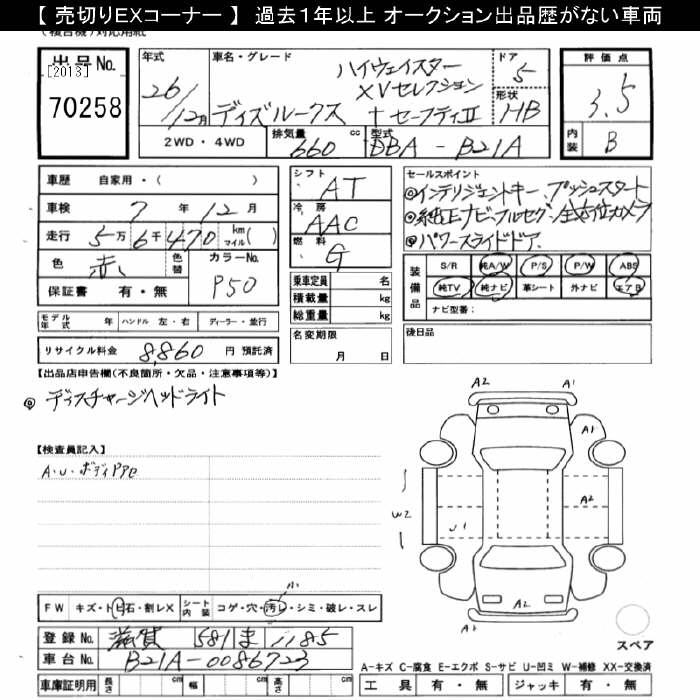 【 売切りEXコーナー 】 過去1年以上 オークション出品歴がない車両
出品No.
[2013]
70258
年式
26/12月
車名・グレード
ハイウェイスター
XVセレクション
デイズルークス +セーフティII
ドア
5
形状
HB
評価点
3.5
内装
B
2WD・4WD
排気量
660
cc
型式
DBA-B21A
車歴
自家用・( )
車検
7年12月
走行
5万6千470
km
マイル( )
色
赤
色替
カラーNo.
P50
保証書
有・無
モデル年式
年
ハンドル 左・右
ディーラー・並行
リサイクル料金
8,860
円 預託済
シフト
AT
冷房
AAC
燃料
G
乗車定員
名
積載量
kg
総重量
kg
名変期限
月 日
セールスポイント
◎インテリジェントキー、プッシュスタート
◎純正ナビ・フルセグ・全方位カメラ
◎パワースライドドア
装備品
S/R 純A/W P/S P/W ABS
純TV 純ナビ 革シート 外ナビ エアB
ナビ型番:
後日品
【出品店申告欄(不良箇所・欠品・注意事項等)】
◎ ディスチャージヘッドライト
【検査員記入】
A・U・ボディPPC
A2
A1
A1
W2
U1
A2
A2
A2
スペア
小
FW
キズ・トビ石・割レX
シート内装
コゲ・穴・汚レ・シミ・破レ・スレ
登録No.
滋賀 581 ま 1185
車台No.
B21A-0086723
車庫証明用
長さ
cm
幅
cm
高さ
cm
A-キズ C-腐食 E-エクボ S-サビ U-凹ミ W-補修 XX-交換済
工具
有・無
ジャッキ
有・無